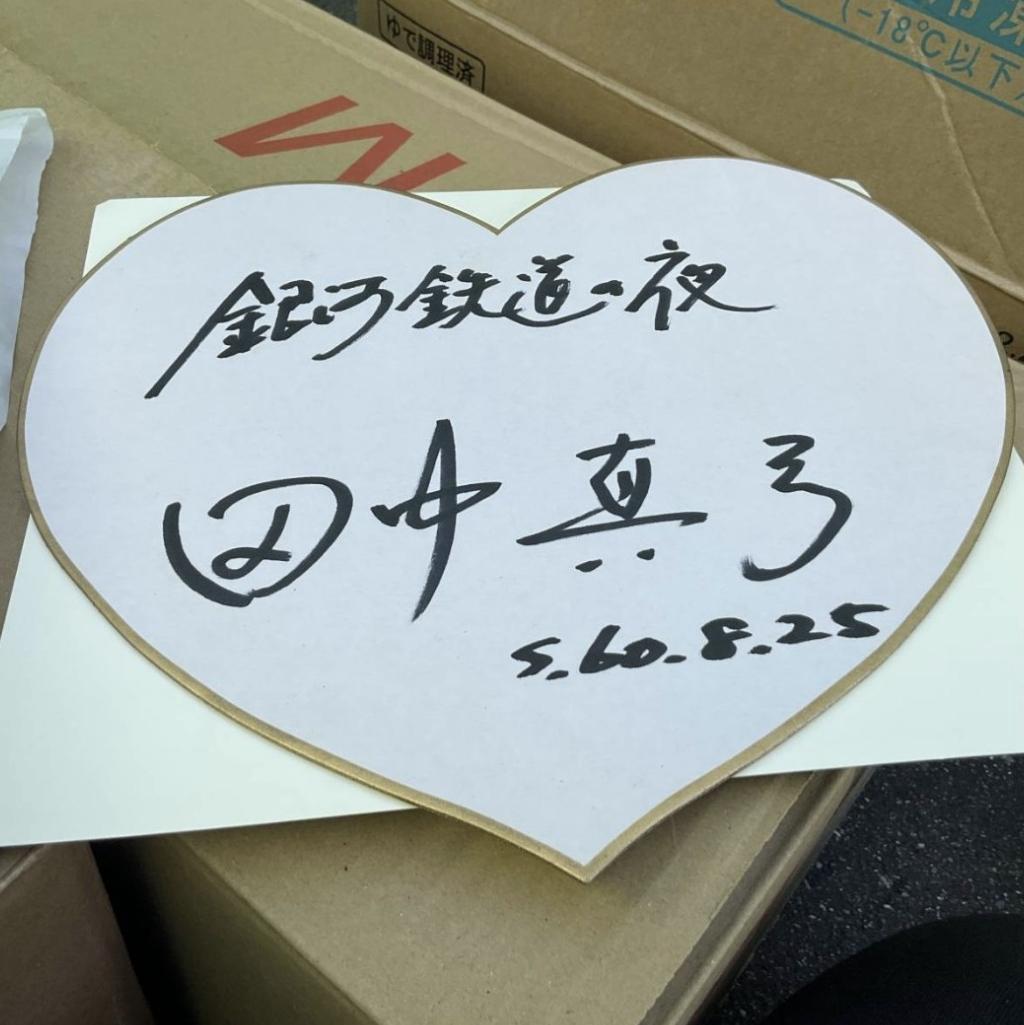 ゆで調理済
(-18℃以下
銀河鉄道の夜
田中真弓
S.60.8.25